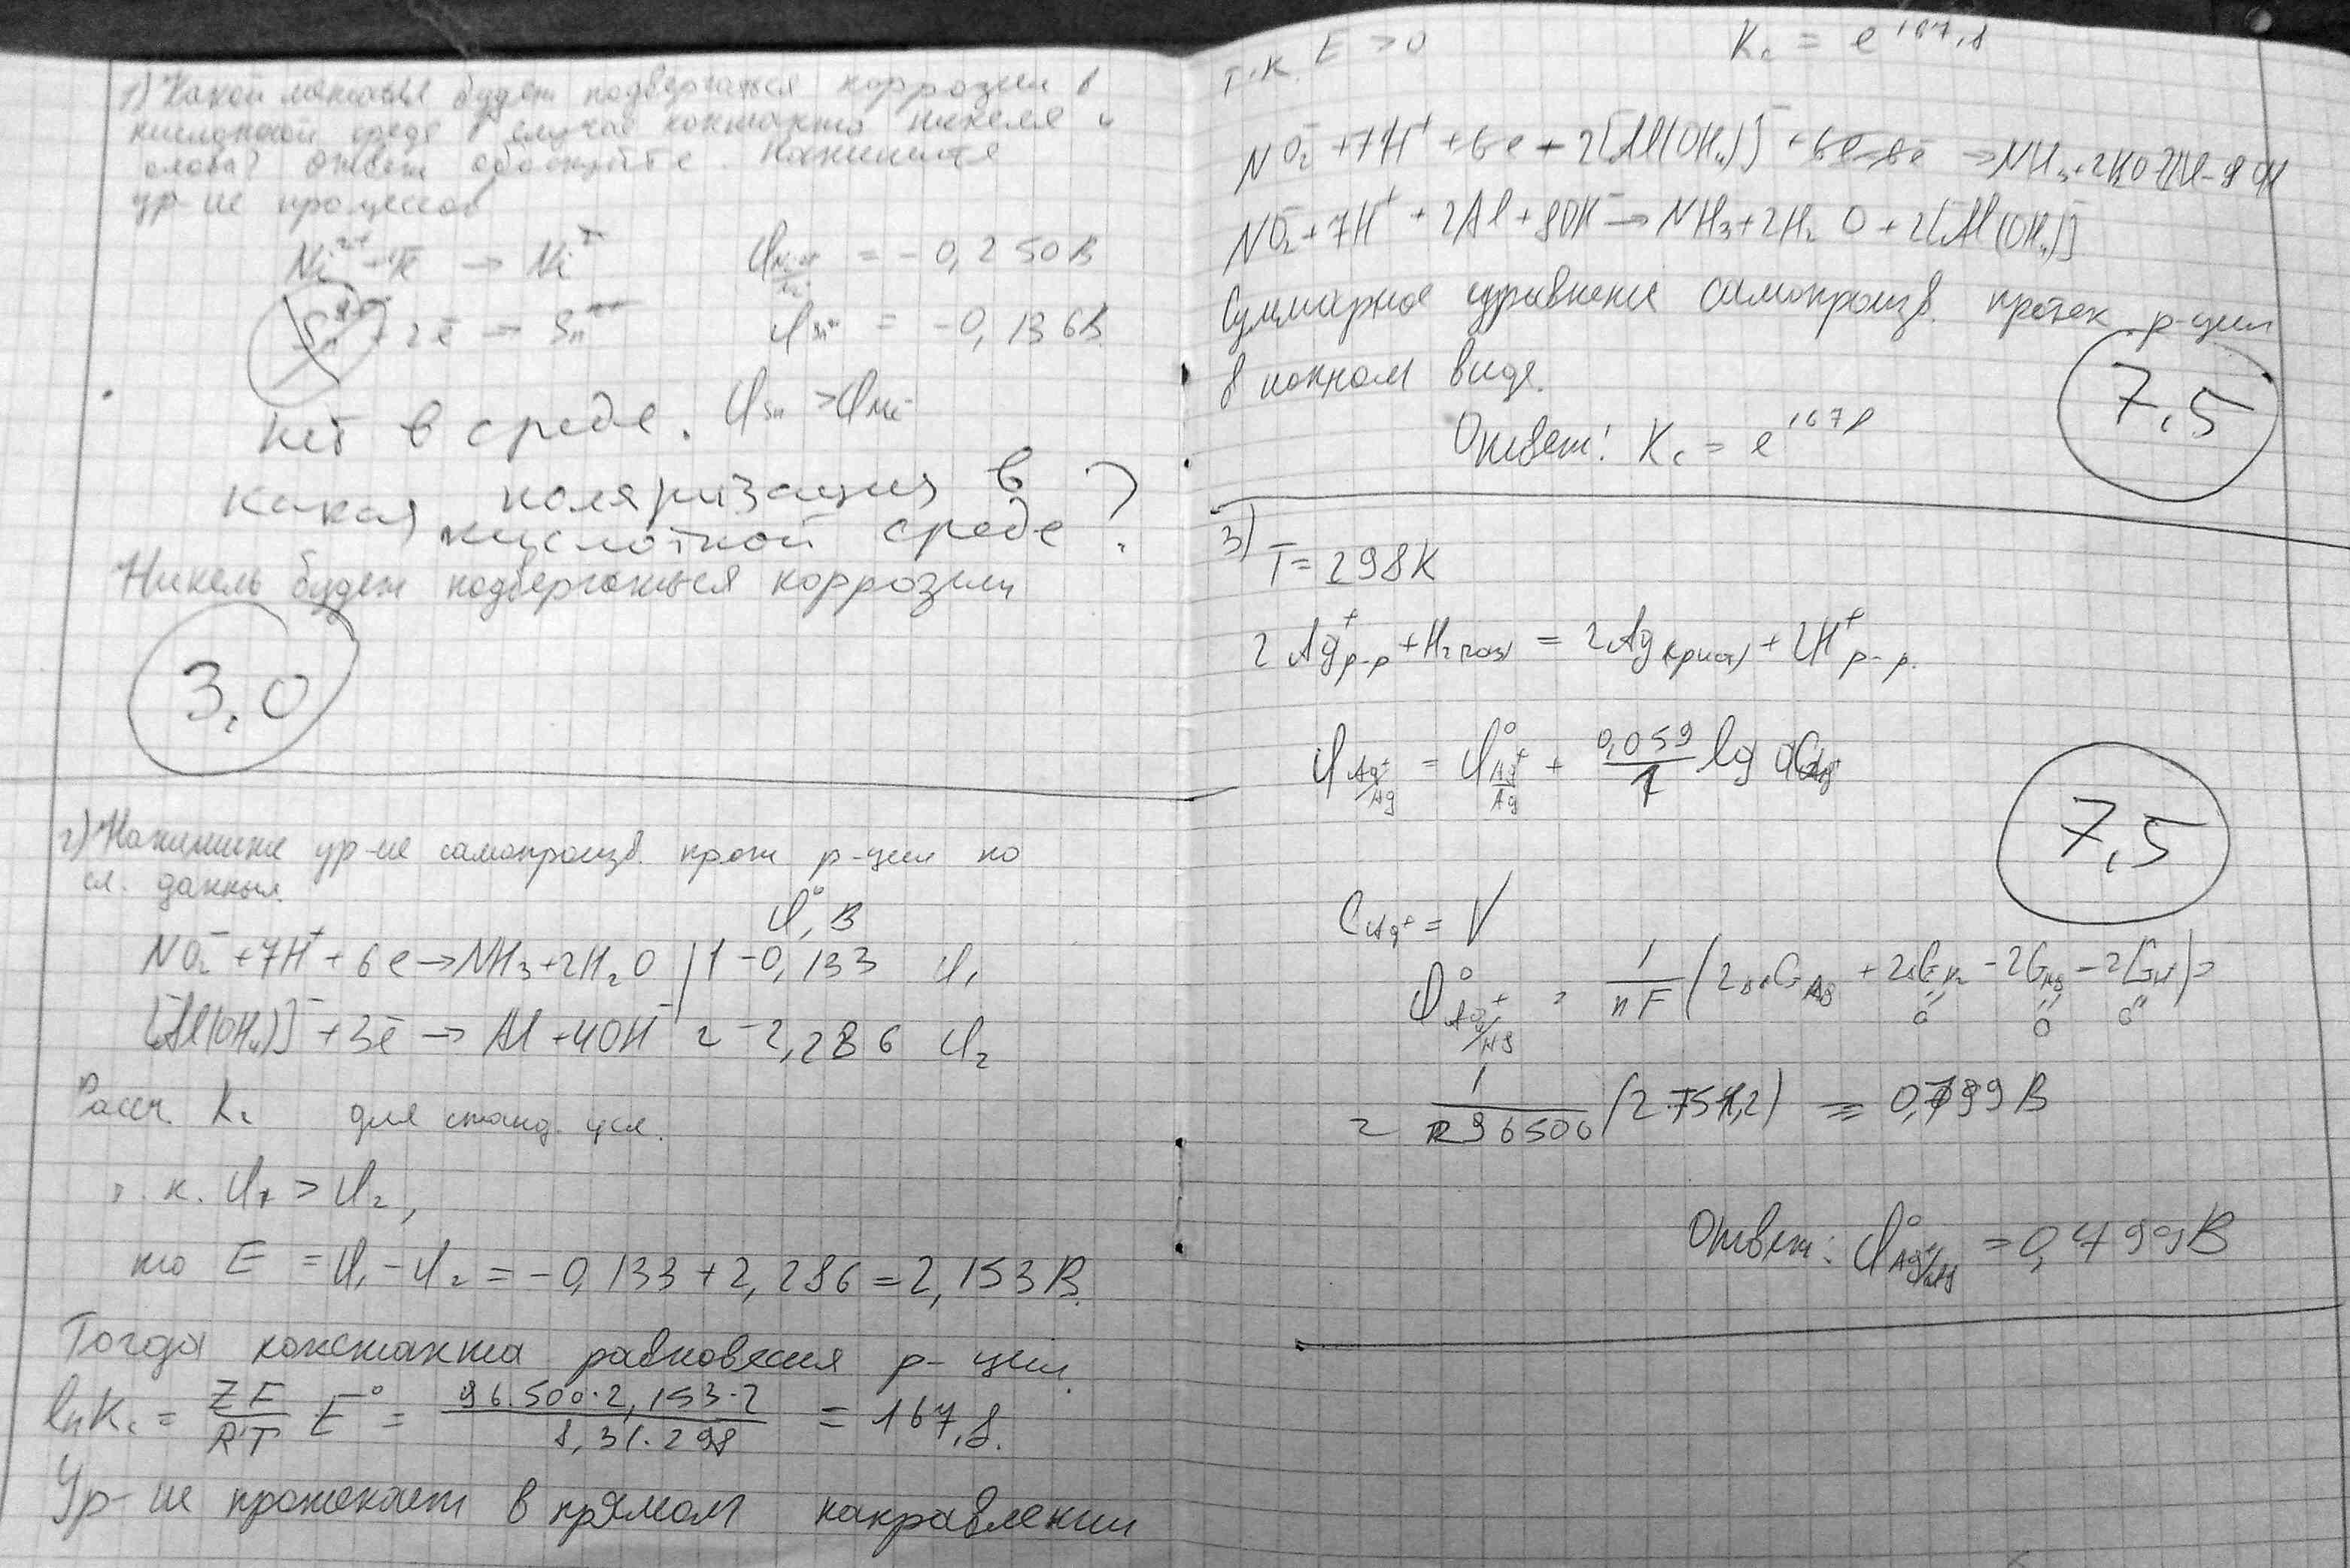 1) Какой металл будет подвергаться коррозии в
кислотной среде в случае контакта никеля и
олова? Ответ обоснуйте. Напишите
ур-ие процессов
Ni²⁺ → Ni φ = -0,250 В
Sn + 2ē → Sn φ Sn = -0,136 В
нет в среде. φSn > φNi
какая поляризация в
кислотной среде?
Никель будет подвергаться коррозии
3,0
2) Напишите ур-ие самопроизв. прот р-ции по
сл. данным.
φ°, В
NO₂⁻ + 7H⁺ + 6e → NH₃ + 2H₂O | 1 -0,133 φ₁
[Al(OH₄)]⁻ + 3ē → Al + 4OH⁻ 2 -2,286 φ₂
Рассч. Kc для станд. усл.
т. к. φ₁ > φ₂,
то E = φ₁ - φ₂ = -0,133 + 2,286 = 2,153 В.
Тогда константа равновесия р-ции.
lnKc = ZF/RT E° = 96.500·2,153·2/8,31·298 = 167,8.
Ур-ие протекает в прямом направлении
т.к. E > 0 Kc = e^167,8
NO₂⁻ + 7H⁺ + 6e + 2[Al(OH₄)]⁻ → NH₃ + 2H₂O
NO₂⁻ + 7H⁺ + 2Al + 8OH⁻ → NH₃ + 2H₂O + 2[Al(OH₄)]
Суммарное уравнение самопроизв. протек. р-ции
в ионном виде.
7,5
Ответ: Kc = e^167,8
3) T = 298K
2Ag⁺р-р + H₂(газ) = 2Ag(крист) + 2H⁺р-р.
φ Ag⁺/Ag = φ° Ag⁺/Ag + 0,059/1 lg
7,5
C Ag⁺ = V
φ° Ag⁺/Ag = 1/nF (
0 0 0
= 96500 ( = 0,799 В
Ответ: φ° Ag⁺/Ag = 0,799 В